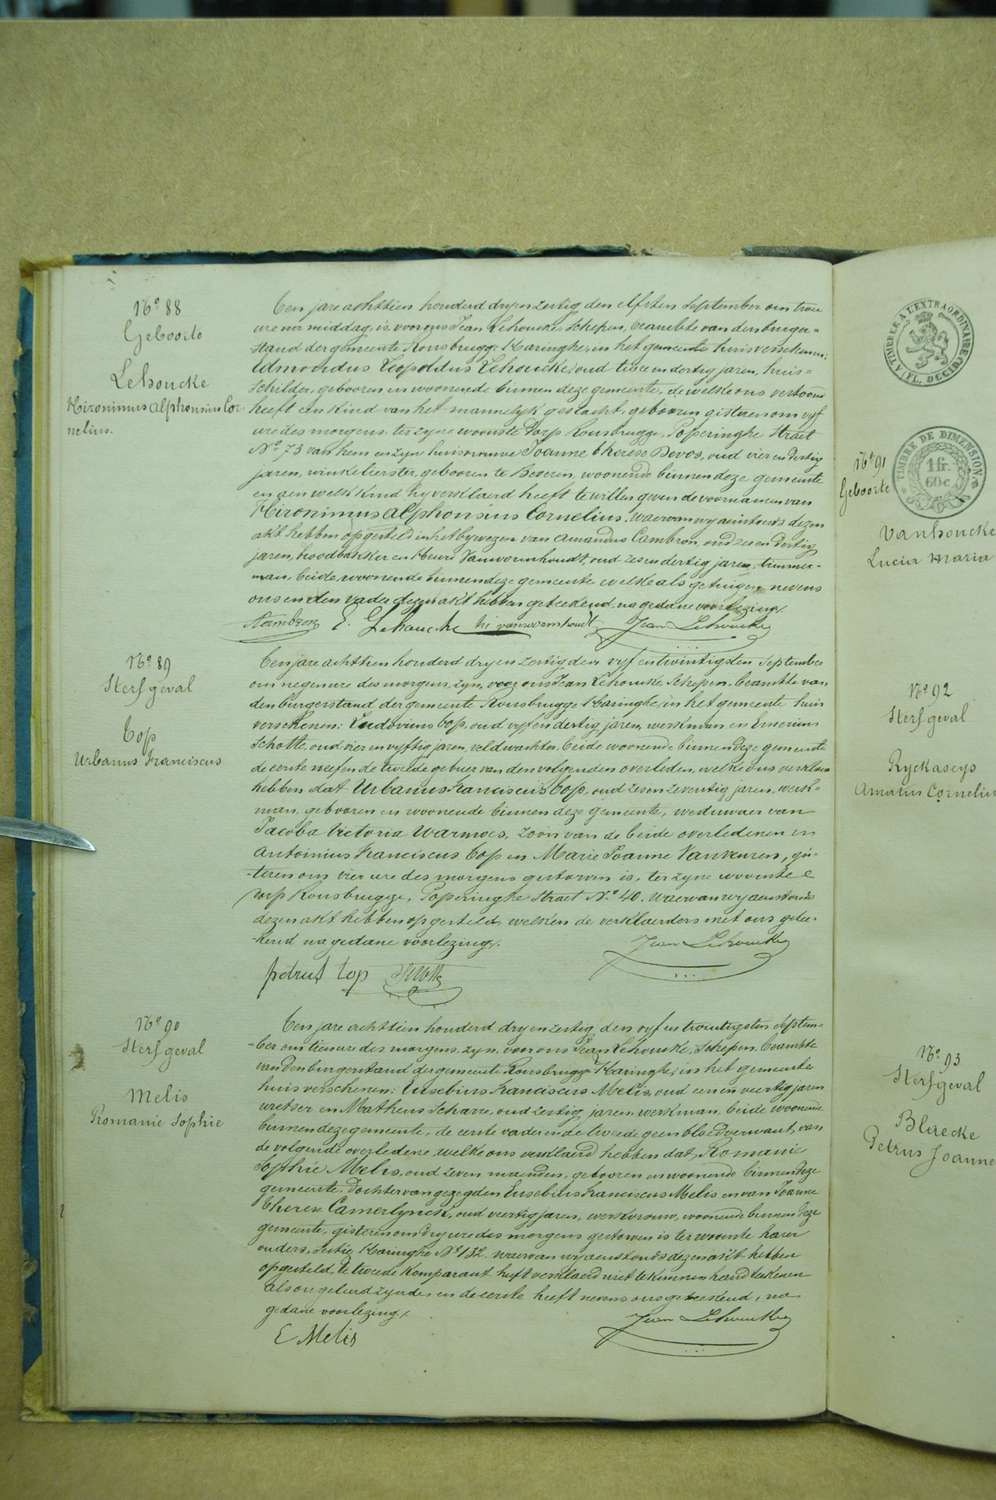 N° 88
Geboorte
Lehoucke
Hironimus Alphonsius Cor-
nelius.
Een jare achttien honderd dry en zestig den elfsten September om twee
ure na middag, is voor ons Jean Lehoucke Schepen, beambte van den burger-
stand der gemeente Rousbrugge-Haringhe, in het gemeente huis verschenen:
Edmondus Leopoldus Lehoucke, oud twee en dertig jaren, huis-
schilder, geboren en woonende binnen deze gemeente, de welke ons vertoond
heeft een kind van het mannelijk geslacht, geboren gisteren om vyf
ure des morgens, ter zyne woonste Dorp Rousbrugge, Poperinghe Straet
N° 73 van hem en zyn huisvrouwe Joanne Therese Devos, oud vier en dertig
jaren, winkelierster, geboren te Beveren, woonende binnen deze gemeente
en aen welk kind hy verklaerd heeft te willen geven de voornamen van
Hironimus Alphonsius Cornelius. waervan wy aenstonds dezen
akt hebben opgesteld in het bywezen van Amandus Cambron, oud zes en dertig
jaren, broodbakker en Henri Vanwormhoudt, oud zes en dertig jaren, timmer-
man, beide woonende binnen deze gemeente welke als getuigen nevens
ons en den vader dezen akt hebben geteekend, na gedane voorlezing.
ACambron E. Lehoucke hi vanwormhoudt Jean Lehoucke
N° 89
Sterfgeval
Cop
Urbanus Franciscus
Een jare achttien honderd dry en zestig den vyf en twintigsten September
om negen ure des morgens, zyn voor ons Jean Lehoucke Schepen, beambte van
den burgerstand der gemeente Rousbrugge Haringhe, in het gemeente huis
verschenen: Ludovicus Cop, oud vyf en dertig jaren, werkman en
Schotte, oud vier en vyftig jaren, veldwachter, beide woonende binnen deze gemeente
de eerste neef en de tweede gebuer van den volgenden overleden, welke ons verklaerd
hebben dat Urbanus Franciscus Cop, oud zeven zeventig jaren, werk-
man, geboren en woonende binnen deze gemeente, weduwaer van
Jacoba Victoria Warmoes, zoon van de beide overledenen
Antoinius Franciscus Cop en Marie Joanne Vankeuren, gis-
teren om vier ure des morgens gestorven is, ter zyne woonste
dorp Rousbrugge, Poperinghe Straet N° 40. waervan wy aenstonds
dezen akt hebben opgesteld, welken de verklaerders met ons getee-
kend na gedane voorlezing.
Jean Lehoucke
pedrus Cop Schotte
N° 90
Sterfgeval
Melis
Romanie Sophie
Een jare achttien honderd dry en zestig, den vyf en twintigsten Septem-
ber om tien ure des morgens, zyn voor ons Jean Lehoucke, Schepen, beambte
van den burgerstand der gemeente Rousbrugge Haringhe, in het gemeente
huis verschenen: Eusebius Franciscus Melis, oud een en veertig jaren
en Matheus Scharre, oud zestig jaren, werkman, beide woonende
binnen deze gemeente, de eerste vader en de tweede geen bloedverwant, van
de volgende overledene, welke ons verklaerd hebben dat, Romanie
Sophie Melis, oud zeven maenden, geboren en woonende binnen deze
gemeente, dochter van gezegden Eusebius Franciscus Melis en van Joanne
Therese Camerlynck, oud veertig jaren, werkvrouw, woonende binnen deze
gemeente, gisteren om dry ure des morgens gestorven is ter woonste harer
ouders, Sectie Haringhe N° 132. waervan wy aenstonds dezen akt hebben
opgesteld, te tweede komparant heeft verklaerd niet te kunnen handteekenen
als ongeleerd zynde, en de eerste heeft nevens ons geteekend, na
gedane voorlezing.
Jean Lehoucke
E Melis
TIMBRE A L'EXTRAORDINAIRE
N° 91
Geboorte
TIMBRE DE DIMENSION
1 fr.
60 c.
Vanhoucke
Lucia Maria
N° 92
Sterfgeval
Ryckaseys
Amatus Cornelius
N° 93
Sterfgeval
Blaecke
Petrus Joanne